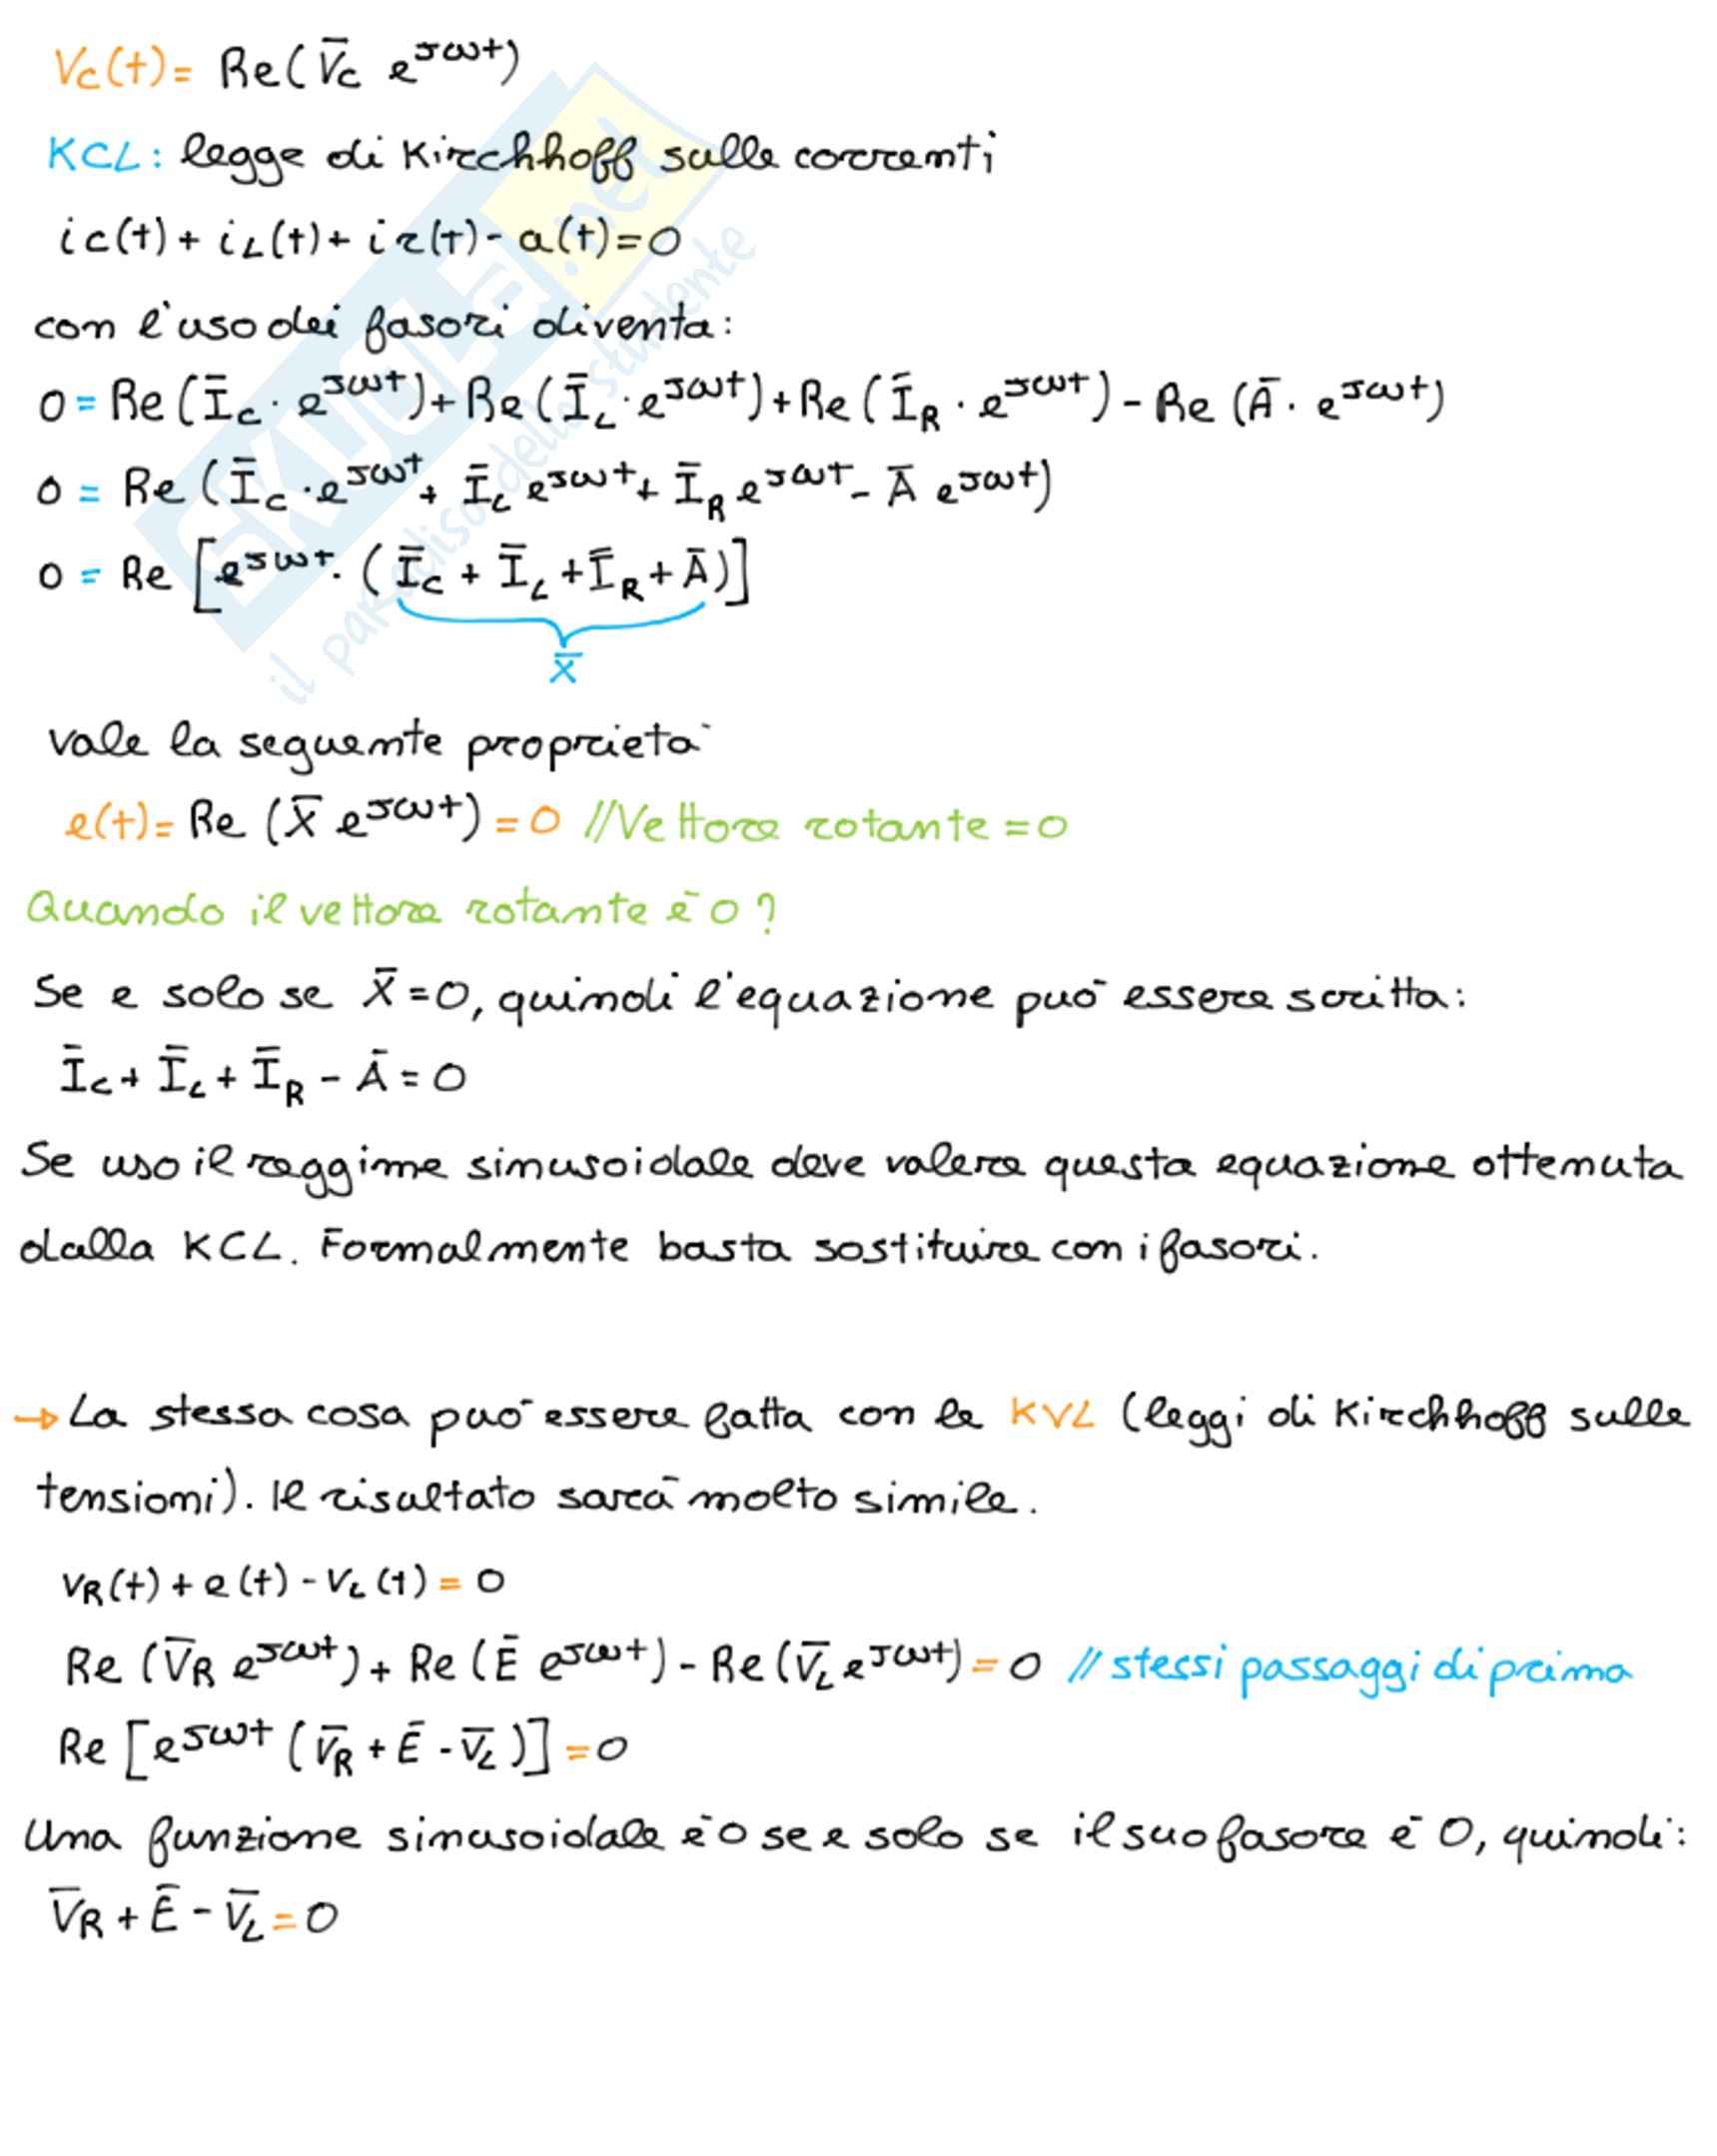 Vc(t)= Re(V̄c e^jωt)
KCL: legge di Kirchhoff sulle correnti
ic(t) + iL(t) + ir(t) - a(t) = 0
con l'uso dei fasori diventa:
0 = Re(Īc · e^jωt) + Re(ĪL · e^jωt) + Re(ĪR · e^jωt) - Re(Ā · e^jωt)
0 = Re(Īc · e^jωt + ĪL e^jωt + ĪR e^jωt - Ā e^jωt)
0 = Re[e^jωt · (Īc + ĪL + ĪR + Ā)]
X̄
vale la seguente proprietà
e(t) = Re(X̄ e^jωt) = 0 //Vettore rotante = 0
Quando il vettore rotante è 0?
Se e solo se X̄ = 0, quindi l'equazione può essere scritta:
Īc + ĪL + ĪR - Ā = 0
Se uso il reggime sinusoidale deve valere questa equazione ottenuta
dalla KCL. Formalmente basta sostituire con i fasori.
→ La stessa cosa può essere fatta con le KVL (leggi di Kirchhoff sulle
tensioni). Il risultato sarà molto simile.
vR(t) + e(t) - vL(t) = 0
Re(V̄R e^jωt) + Re(Ē e^jωt) - Re(V̄L e^jωt) = 0 // stessi passaggi di prima
Re[e^jωt (V̄R + Ē - V̄L)] = 0
Una funzione sinusoidale è 0 se e solo se il suo fasore è 0, quindi:
V̄R + Ē - V̄L = 0
SKUOLA.net
il paradiso dello studente